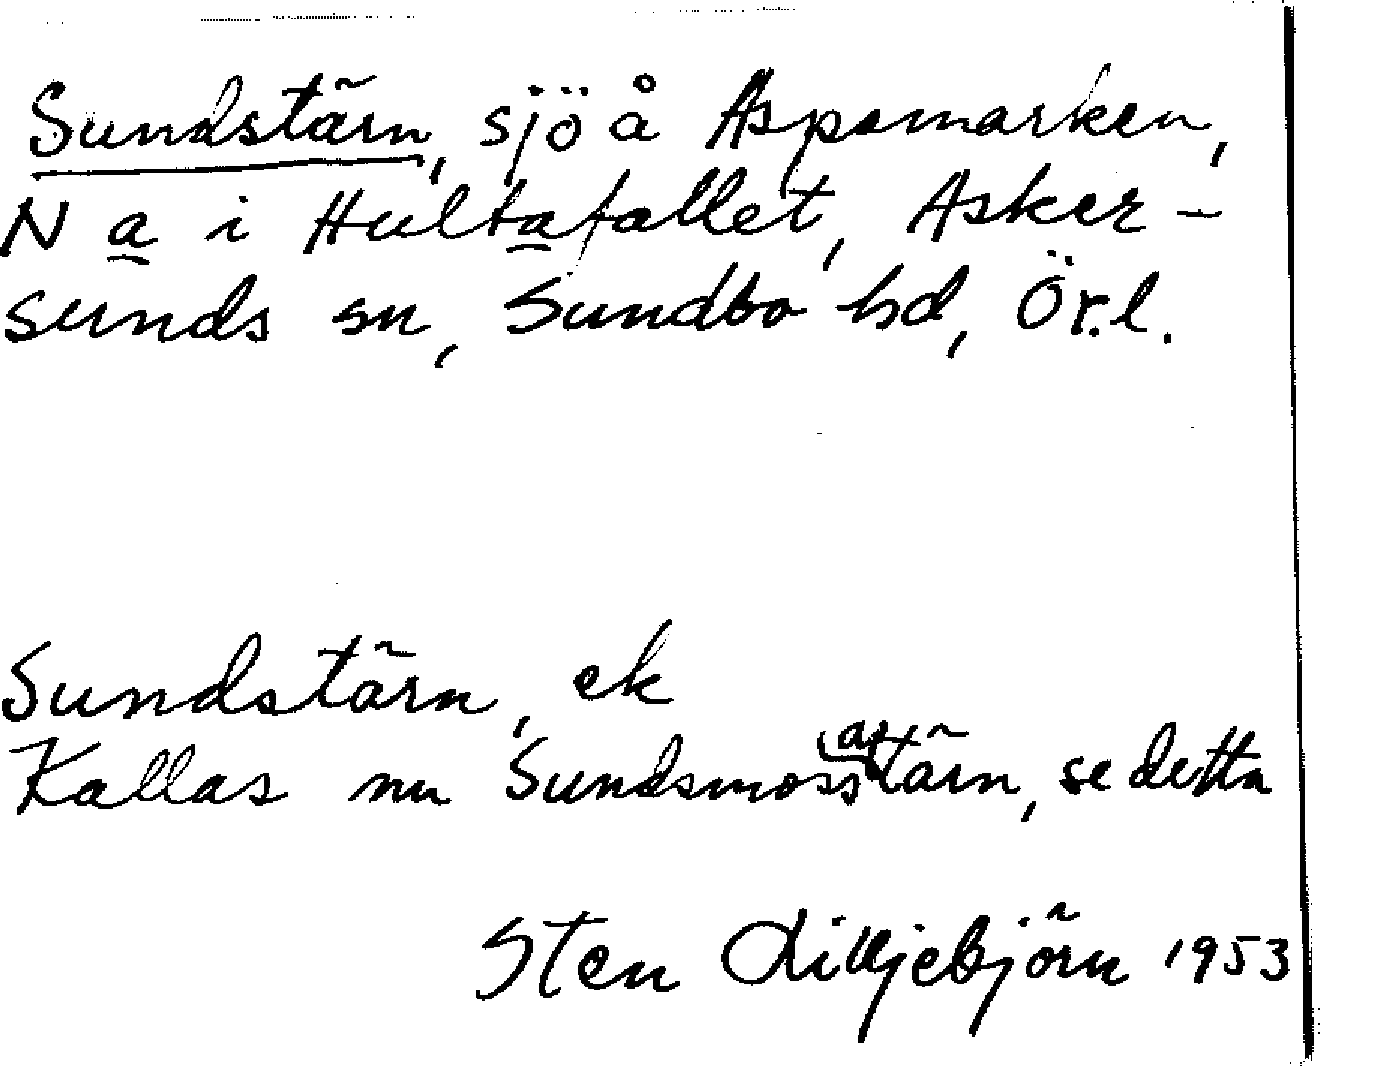 Sundstärn, sjö å Aspamarken,
N a i Hultafallet, Asker-
sunds sn, Sundbo hd, Ör.l.
Sundstärn, ek
Kallas nu Sundsmoss(a)tärn, se detta
Sten Lilljebjörn 1953